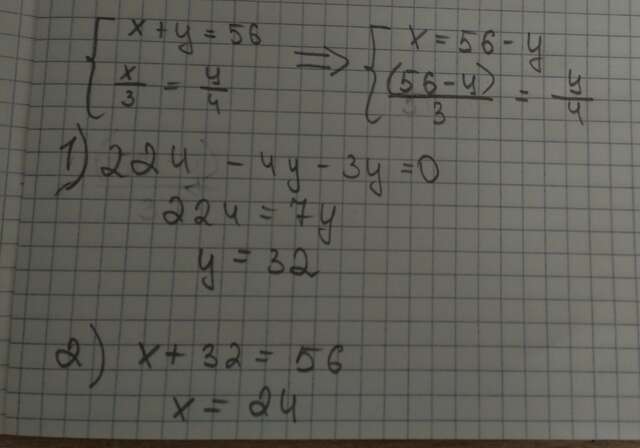 { x + y = 56 ⇒ { x = 56 - y
x/3 = y/4 (56 - y)/3 = y/4
1) 224 - 4y - 3y = 0
224 = 7y
y = 32
2) x + 32 = 56
x = 24